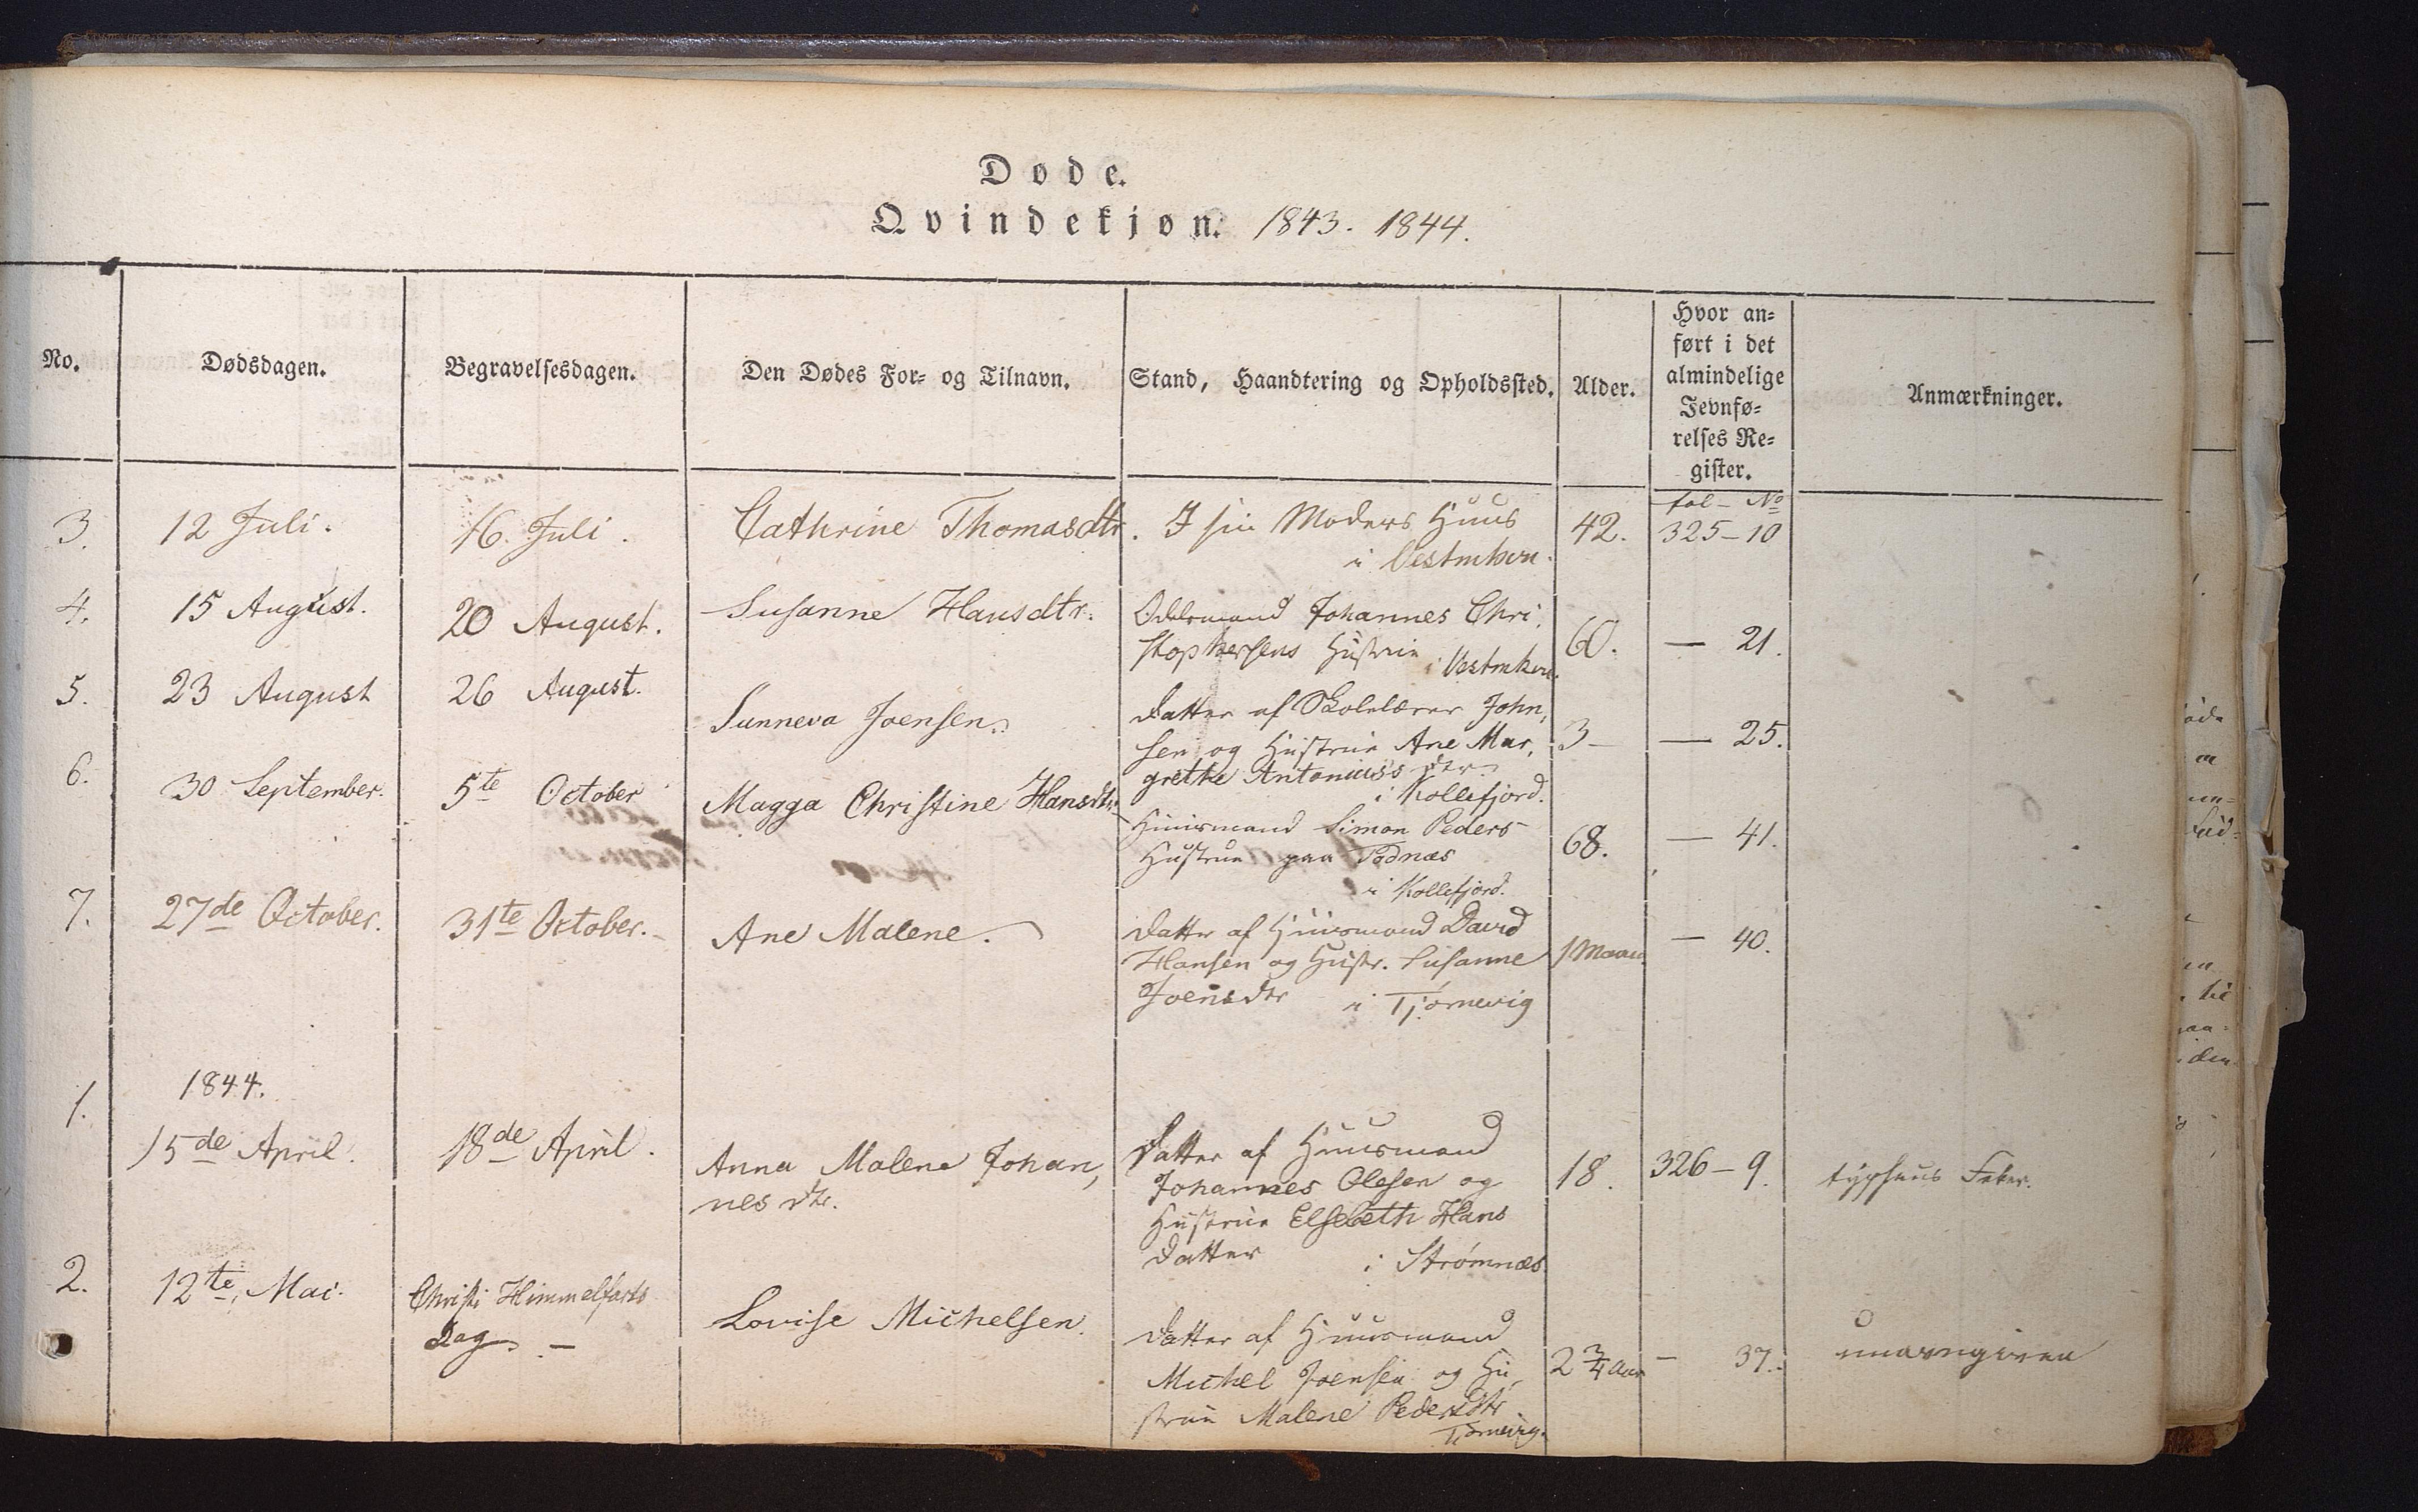 Døde.
Qvindekjøn. 1843. 1844.
No.
Dødsdagen.
Begravelsesdagen.
Den Dødes For- og Tilnavn.
Stand, Haandtering og Opholdssted.
Alder.
Hvor an-
ført i det
almindelige
Jevnfø-
relses Re-
gister.
Anmærkninger.
fol - No
3. 12 Juli. 16. Juli. Cathrine Thomasdtr. I sin Moders Huus 42. 325-10
i Vestmhvn.
4. 15 August. 20 August. Susanne Hansdtr. Odelsmand Johannes Chri,
stophersens Hustrue i Vestmhvn. 60. — 21.
5. 23 August 26 August. Sunneva Joensen. Datter af Skolelærer John,
sen og Hustrue Ane Mar, 3 — — 25.
grethe Antonius's dtr.
i Kollefjord.
6. 30 September. 5te October Magga Christine Hansdtr. Huusmand Simon Peders
Hustrue paa 68. — 41.
i Kollefjord.
7. 27de October. 31te October. Ane Malene. Datter af Huusmand David
Hansen og Hustr. Susanne 1 Maan. — 40.
Joensdtr i Tjørnevig
1844.
1. 15de April. 18de April. Anna Malene Johan,
nesdtr.
Datter af Huusmand
Johannes Olesen og 18. 326-9. typheus Feber.
Hustrue Elsebeth Hans
datter i Strømnæs.
2. 12te, Mai. Christi Himmelfarts
Dag. —
Lovise Michelsen. Datter af Huusmand
Michel Joensen og Hu, 2 3/4 Aar — 37.
strue Malene Pedersdtr
Tjørnevig.